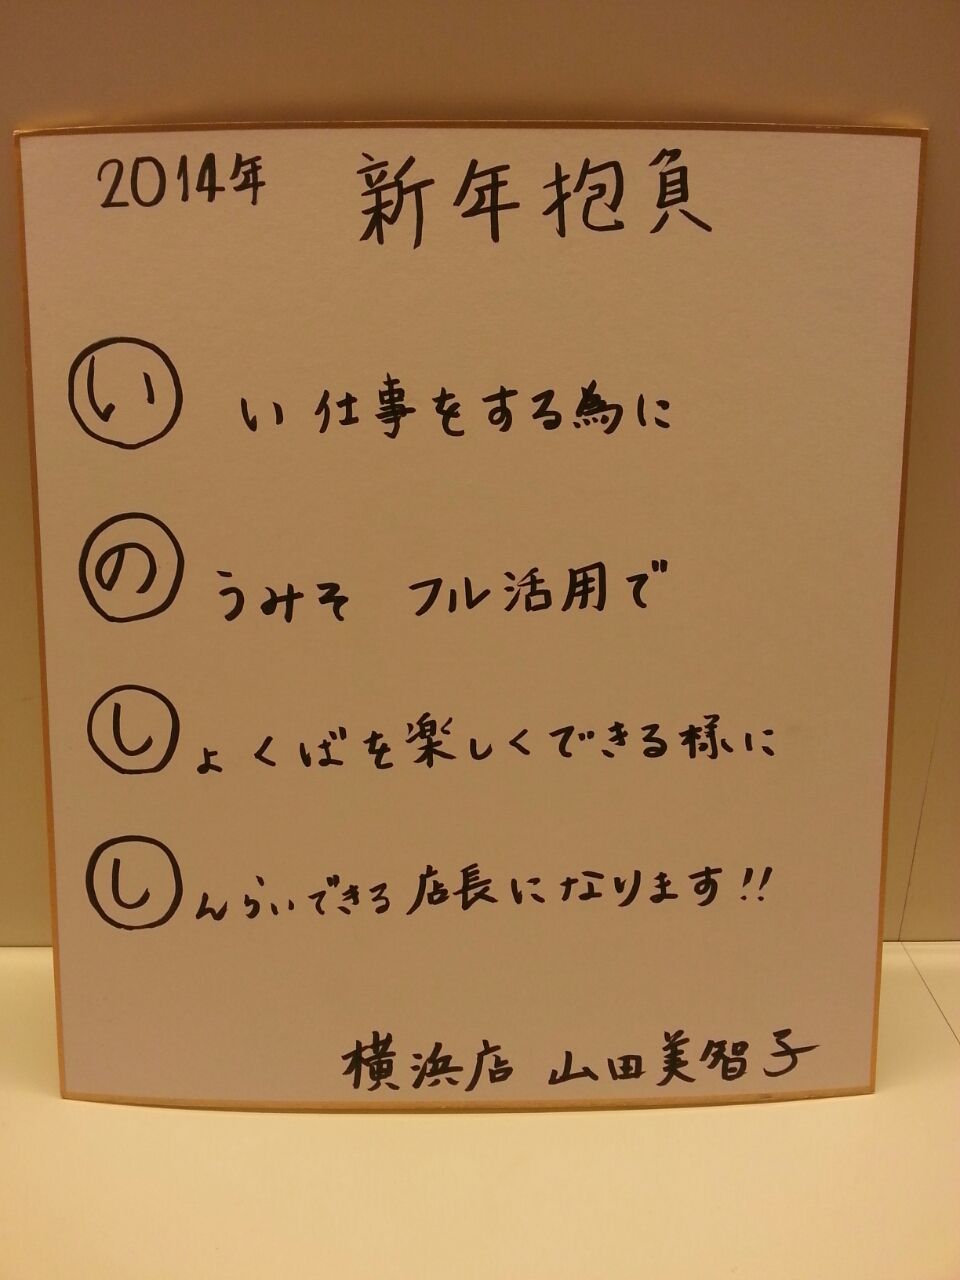 2014年 新年抱負
いい仕事をする為に
のうみそ フル活用で
しょくばを楽しくできる様に
しんらいできる店長になります!!
横浜店 山田美智子